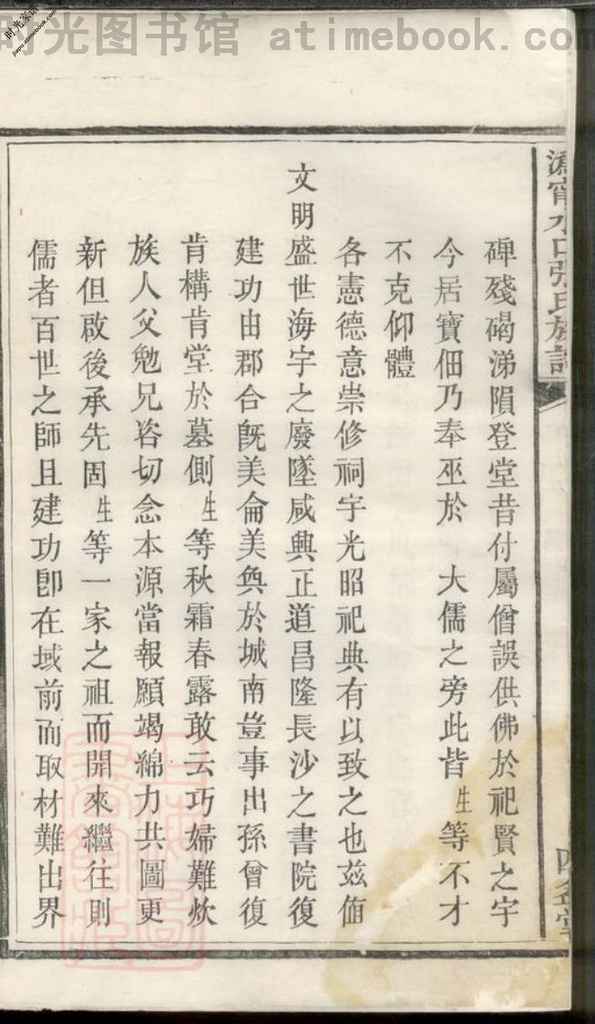 时光图书馆 atimebook.com
碑殘碣涕隕登堂昔付屬僧誤供佛於祀賢之宇
今居寶佃乃奉巫於 大儒之旁此皆生等不才
不克仰體
各憲德意崇修祠宇光昭祀典有以致之也茲値
文明盛世海宇之廢墜咸興正道昌隆長沙之書院復
建功由郡合旣美侖美奐於城南豈事出孫曾復
肯構肯堂於墓側生等秋霜春露敢云巧婦難炊
族人父勉兄咨切念本源當報願竭綿力共圖更
新但啟後承先固生等一家之祖而開來繼往則
儒者百世之師且建功卽在域前而取材難出界
甯水口張氏族譜